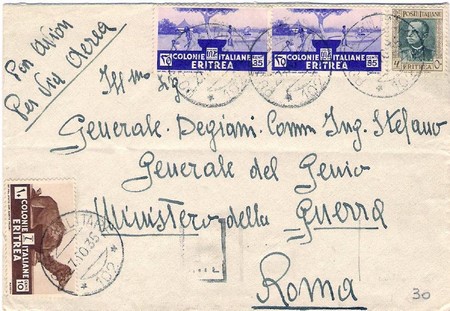 Per avion
Per via Aerea
COLONIE ITALIANE
ERITREA
35
COLONIE ITALIANE
ERITREA
35
POSTE ITALIANE
ERITREA
Ill mo Sig
Generale Degiani Comm Ing. Stefano
Generale del Genio
Ministero della Guerra
Roma
COLONIE ITALIANE
ERITREA
10
102
30